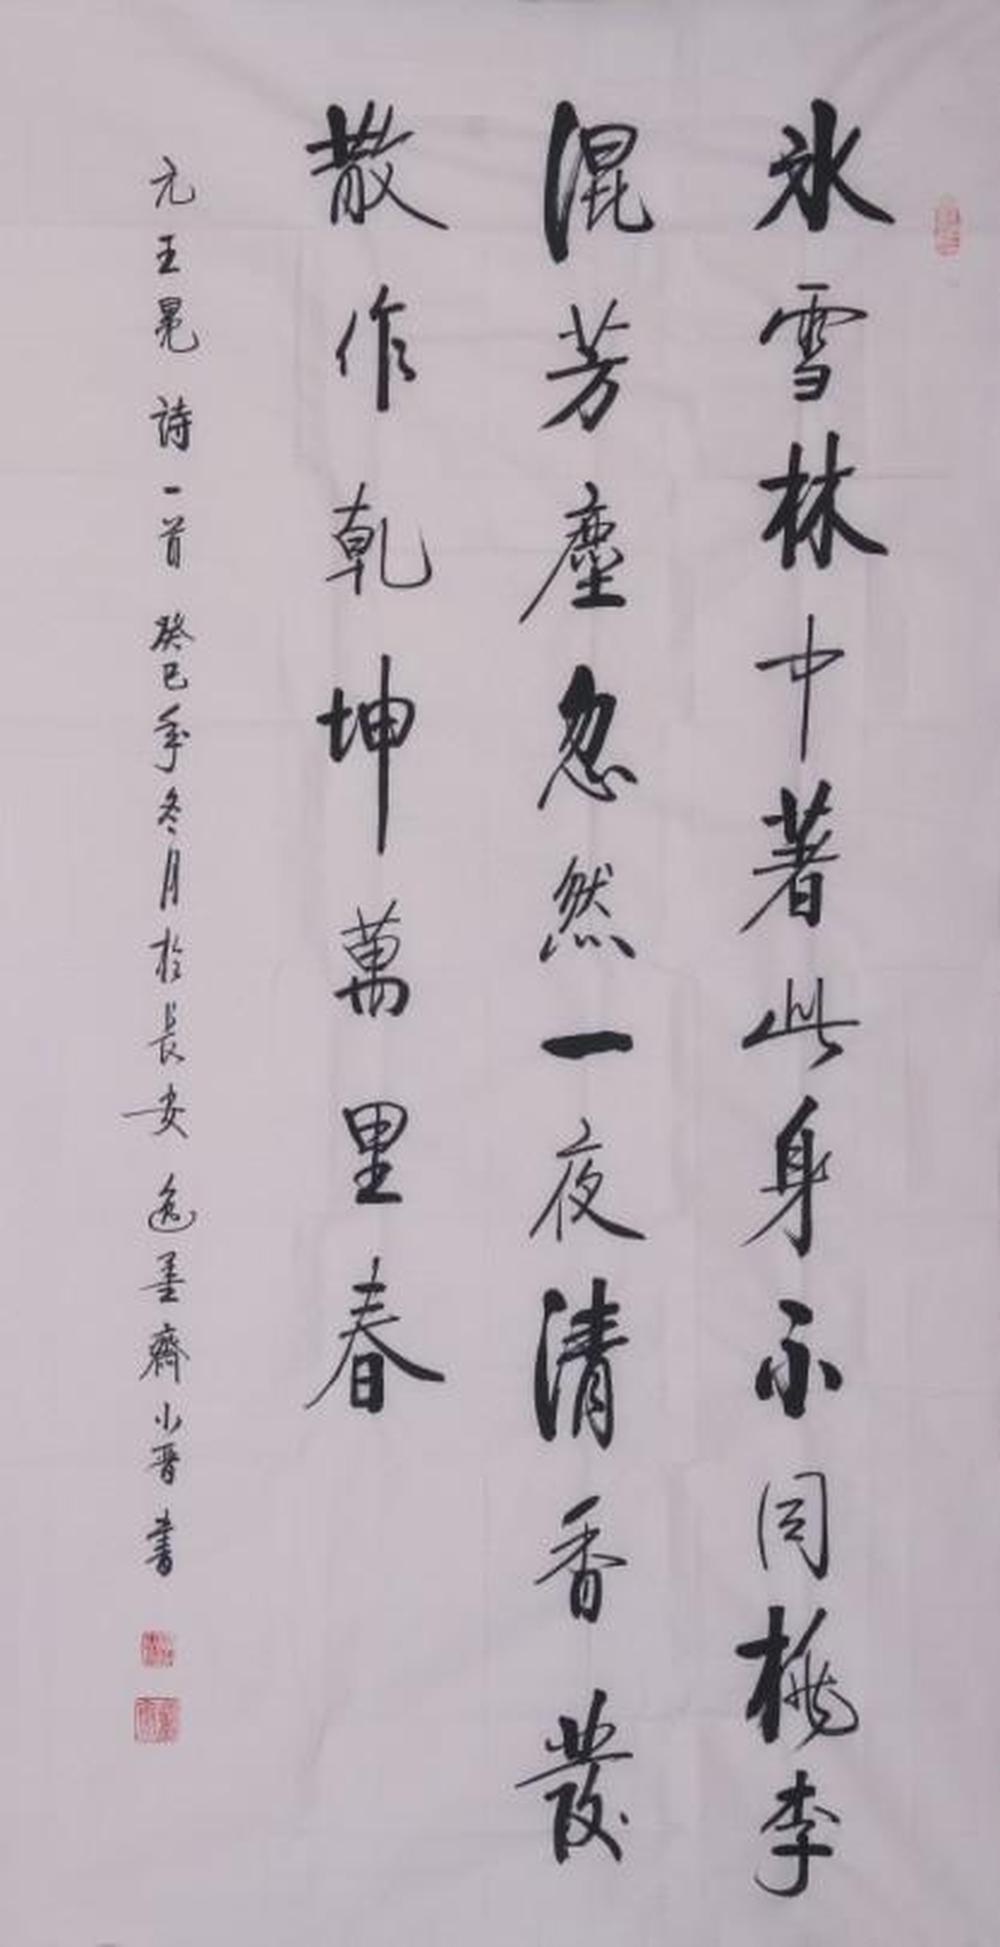 冰雪林中著此身不同桃李
混芳塵忽然一夜清香發
散作乾坤萬里春
元王冕詩一首癸巳年冬月於長安逸墨齋小晉書